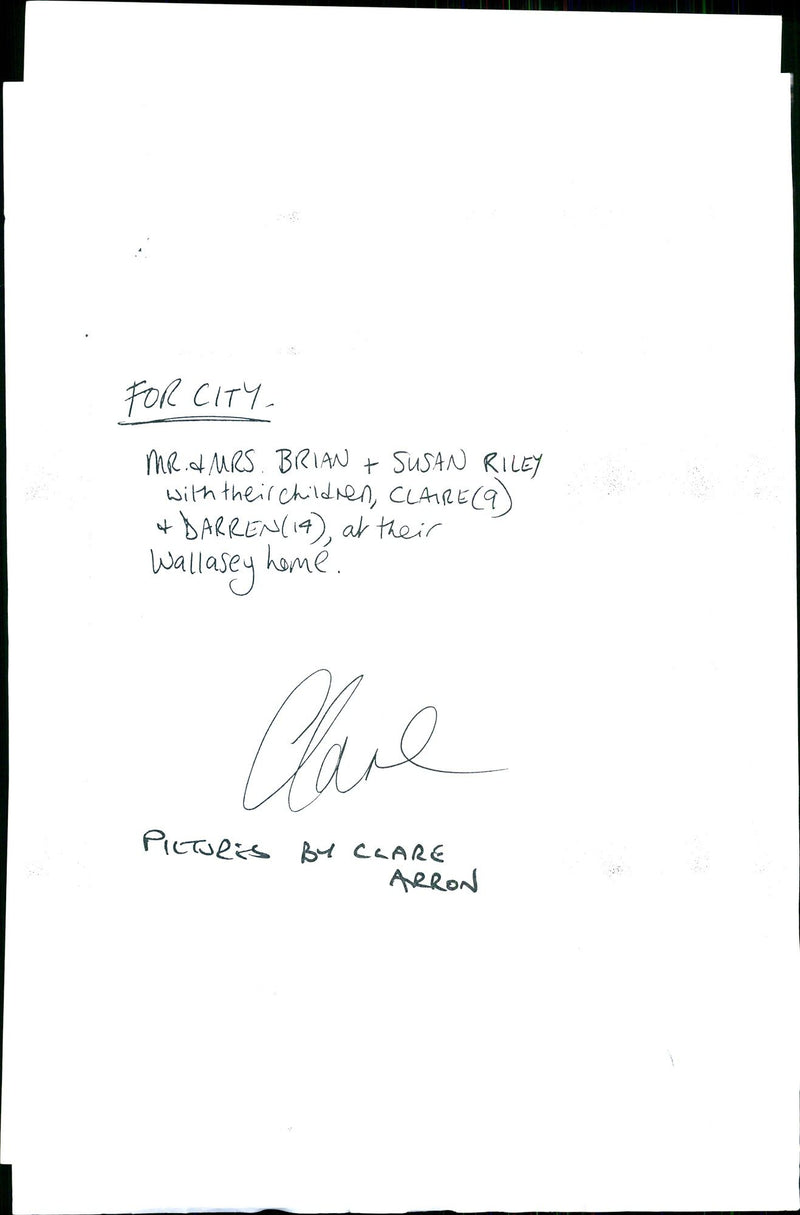 FOR CITY.
MR. & MRS. BRIAN + SUSAN RILEY
with their children, CLAIRE(9)
+ DARREN(14), at their
Wallasey home.
Clare
PICTURES BY CLARE
ARRON